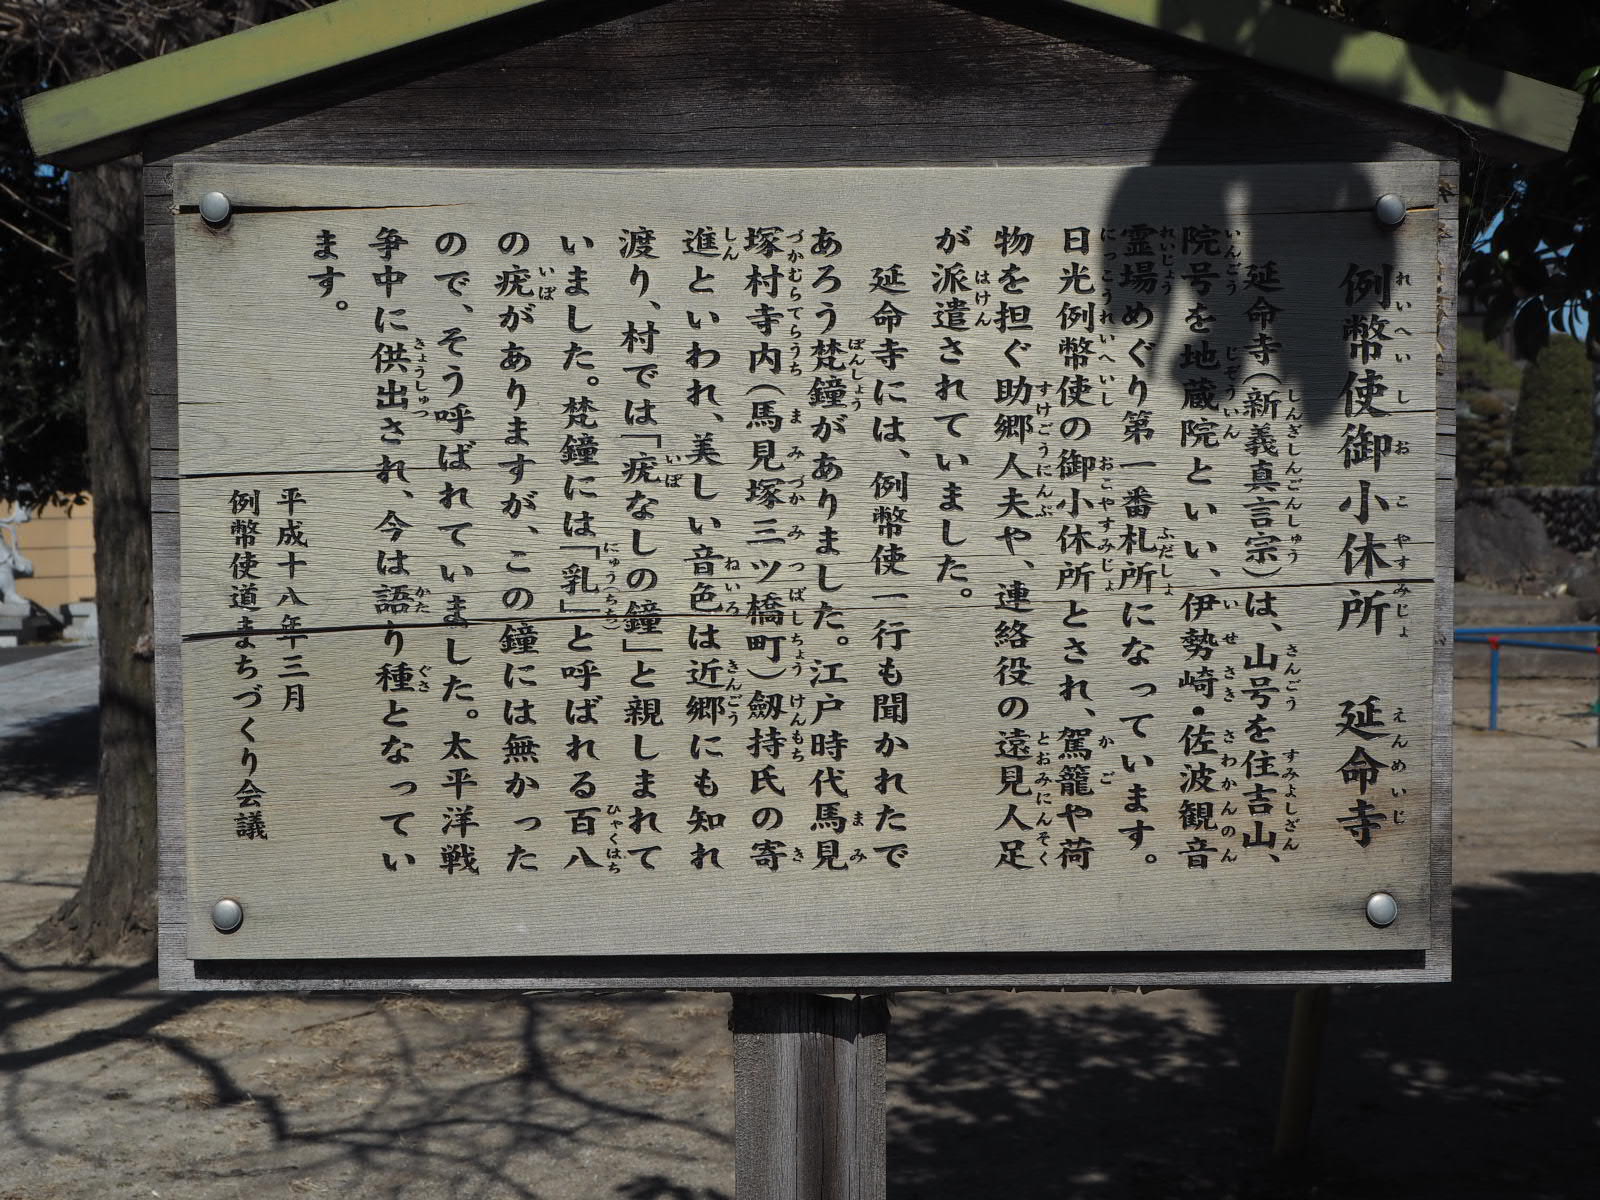 例幣使御小休所　延命寺
延命寺（新義真言宗）は、山号を住吉山、
院号を地蔵院といい、伊勢崎・佐波観音
霊場めぐり第一番札所になっています。
日光例幣使の御小休所とされ、駕籠や荷
物を担ぐ助郷人夫や、連絡役の遠見人足
が派遣されていました。
延命寺には、例幣使一行も聞かれたで
あろう梵鐘がありました。江戸時代馬見
塚村寺内（馬見塚三ツ橋町）劔持氏の寄
進といわれ、美しい音色は近郷にも知れ
渡り、村では「疣なしの鐘」と親しまれて
いました。梵鐘には「乳」と呼ばれる百八
の疣がありますが、この鐘には無かった
ので、そう呼ばれていました。太平洋戦
争中に供出され、今は語り種となってい
ます。
平成十八年三月
例幣使道まちづくり会議